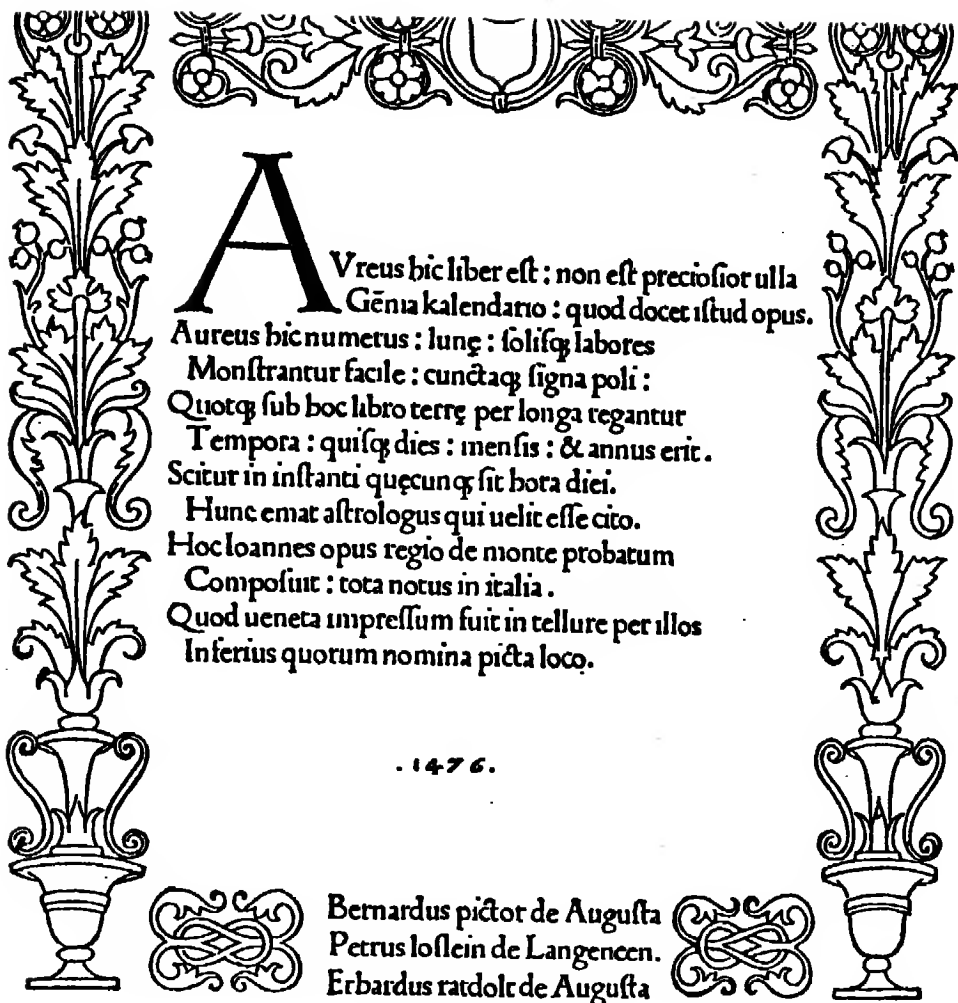 AVreus hic liber eſt : non eſt precioſior ulla
Gēma kalendario : quod docet iſtud opus.
Aureus hic numerus : lunę : ſoliſqꝫ labores
Monſtrantur facile : cunctaqꝫ ſigna poli :
Quotqꝫ ſub hoc libro terrę per longa regantur
Tempora : quiſqꝫ dies : menſis : & annus erit.
Scitur in inſtanti quęcunqꝫ ſit hora diei.
Hunc emat aſtrologus qui uelit eſſe cito.
Hoc Ioannes opus regio de monte probatum
Compoſuit : tota notus in italia.
Quod ueneta impreſſum fuit in tellure per illos
Inferius quorum nomina picta loco.
.1476.
Bernardus pictor de Auguſta
Petrus loſlein de Langencen.
Erhardus ratdolt de Auguſta